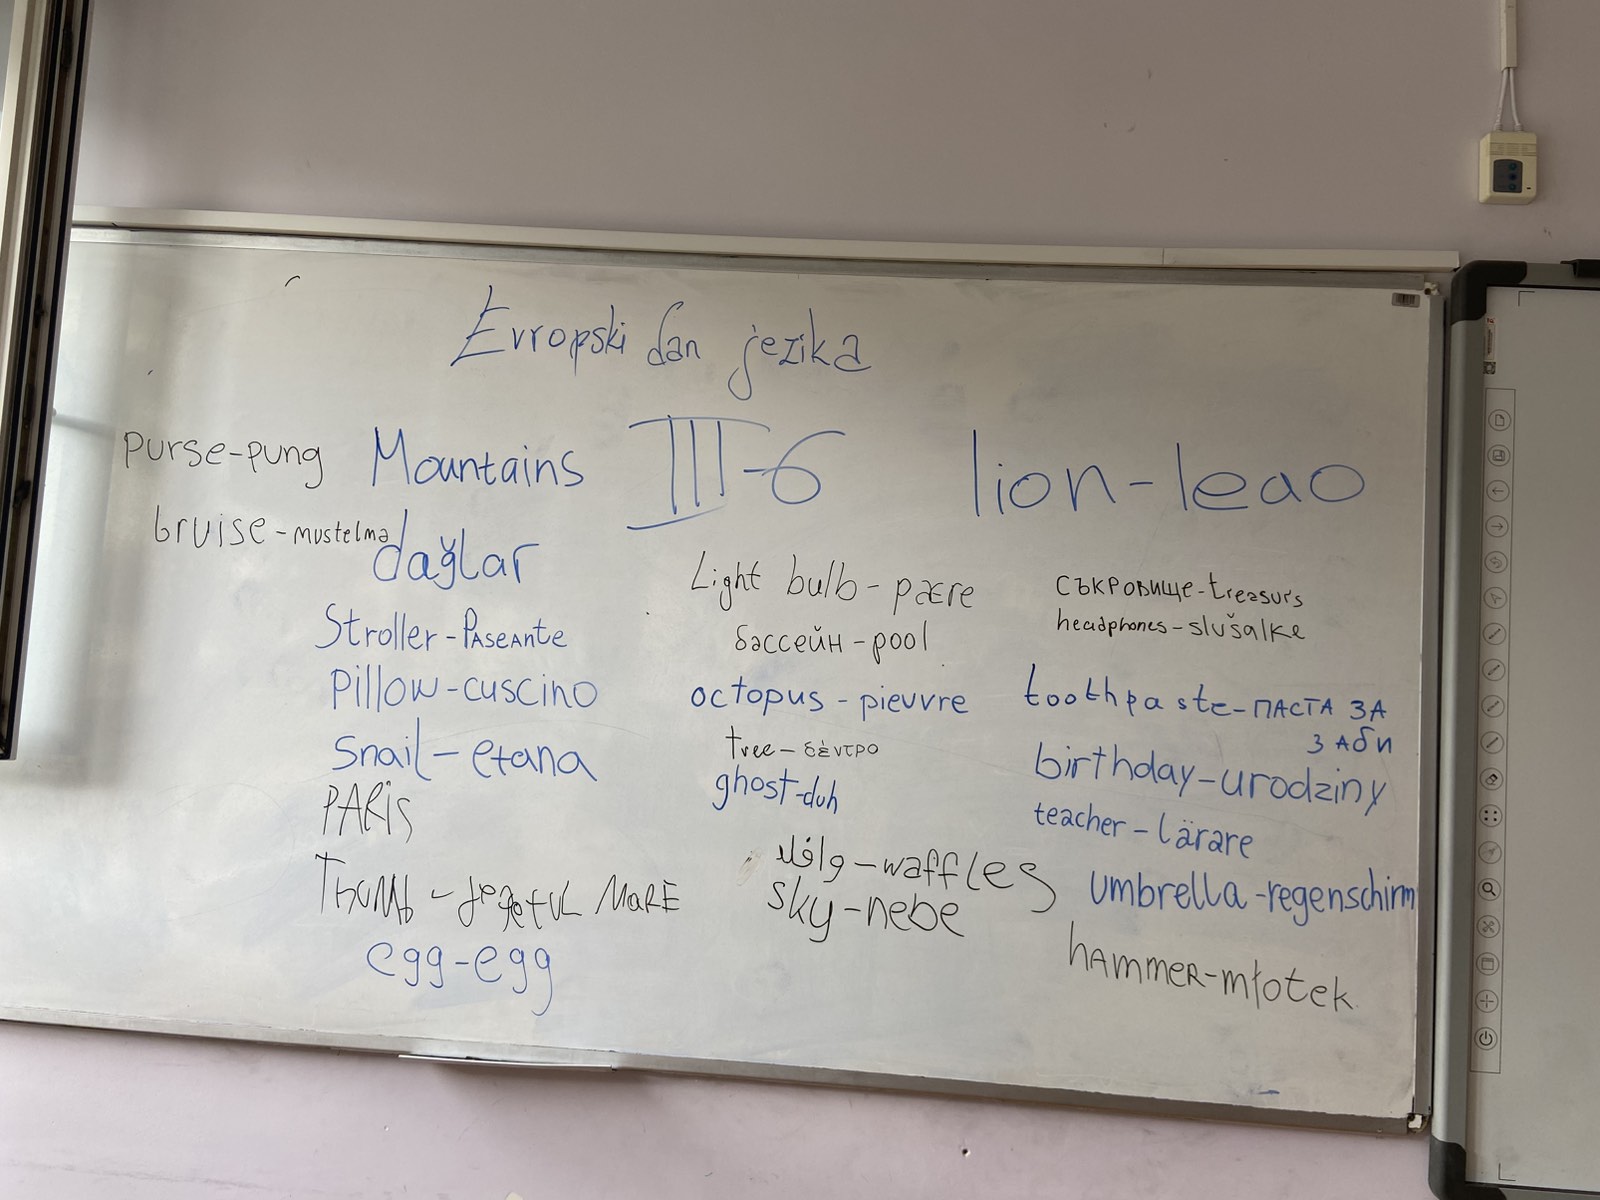 Evropski dan jezika
III-6
purse-pung
bruise-mustelma
Mountains
dağlar
Stroller-PASEANTE
pillow-cuscino
snail-etana
PARIS
THUMB - degetul MARE
egg-egg
Light bulb-pære
бассейн-pool
octopus-pieuvre
tree-δέντρο
ghost-duh
وافل-waffles
sky-nebe
lion-leao
съкровище-treasurs
headphones-slušalke
toothpaste-ПАСТА ЗА
ЗАБИ
birthday-urodziny
teacher-lärare
umbrella-regenschirm
hammer-młotek